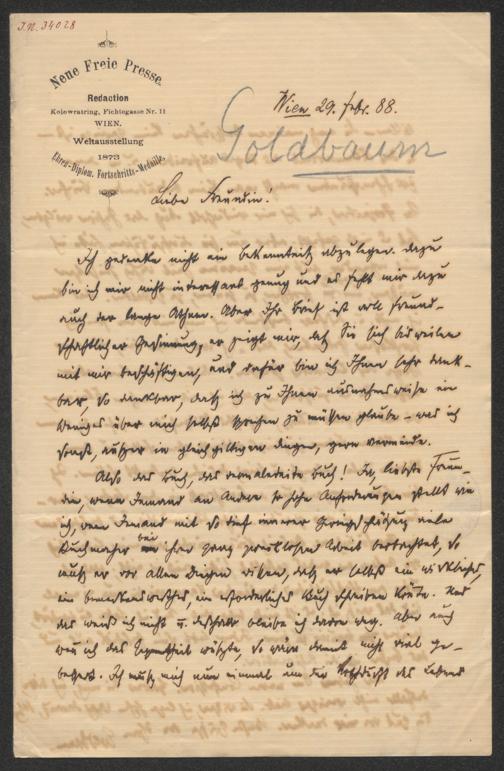 J.N. 34028
Neue Freie Presse.
Redaction
Kolowratring, Fichtegasse Nr. 11
WIEN.
Weltausstellung
1873
Ehren-Diplom. Fortschritts-Medaille.
Wien 29. Febr. 88.
Goldbaum
Liebe Freundin!
Ich gedenke nicht ein Bekenntniß abzulegen. Dazu
bin ich mir nicht interessant genug und es fehlt mir dazu
auch der lange Athem. Aber Ihr Brief ist voll freund-
schaftlicher Gesinnung, er zeigt mir, daß Sie sich bisweilen
mit mir beschäftigen, und dafür bin ich Ihnen sehr dank-
bar, so dankbar, daß ich zu Ihnen ausnahmsweise ein
Weniges über mich selbst sprechen zu müssen glaube – was ich
sonst, außer in gleichgiltigen Dingen, gern vermeide.
Also das Buch, das vermaledeite Buch! Ja, liebste Freun-
din, wenn Jemand an Andere so hohe Anforderungen stellt wie
ich, wenn Jemand mit so tief innerer Geringschätzung viele
Buchmacher bei ihrer ganz zwecklosen Arbeit betrachtet, so
muß er vor allen Dingen wissen, daß er selbst ein wirkliches,
ein bemerkenswerthes, ein erforderliches Buch schreiben könne. Und
das weiß ich nicht u. deshalb bleibe ich davon weg. Aber auch
wenn ich das Gegentheil wüßte, so wäre damit nicht viel ge-
bessert. Ich muß mich nun einmal um die Nothdurft des Lebens